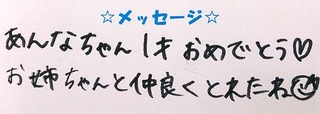 ☆メッセージ☆
あんなちゃん1才おめでとう♡
お姉ちゃんと仲良くとれたね